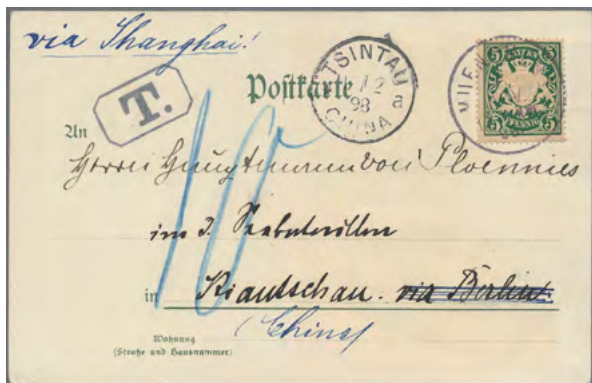 via Shanghai!
TSINTAU
1/2
98
a
CHINA
MUEN
BAYERN
5 5
PFENNIG
5 5
T.
Postkarte
10
An
Herrn Hauptmann von Ploennies
im 3. Seebataillon
in Kiautschau. via Berlin.
China
Wohnung
(Straße und Hausnummer)